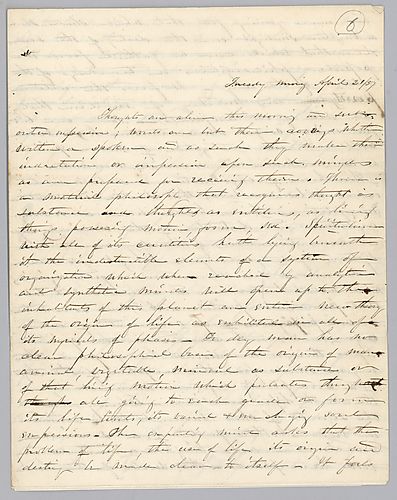 6
Tuesday morng April 21/57
Thoughts are alive this morning in
expression, words are but their
written or spoken and as such they make their
incarnation or impression upon such minds
as are prepared for receiving them. There is
a material philosophy that recognises thought as
substance and thoughts as entities, as living
things possessing motion, form, &c. Spiritualism
with all of its crudities hath lying beneath
it the indestructible elements of a system of
organization which when revealed by analytic
and synthetic minds will open up to the
inhabitants of this planet an entire new theory
of the origin of life, as exhibited in all of
its myriads of phases. To day man has no
clear philosophical views of the origin of man
animal, vegetable, mineral as substance or
of that living motion which pulsates through
all giving to each grade or form
its life, its and soul
expressions. The enquiring mind asks that the
problem of life, the use of life its origin and
destiny be made clear to itself. It feels